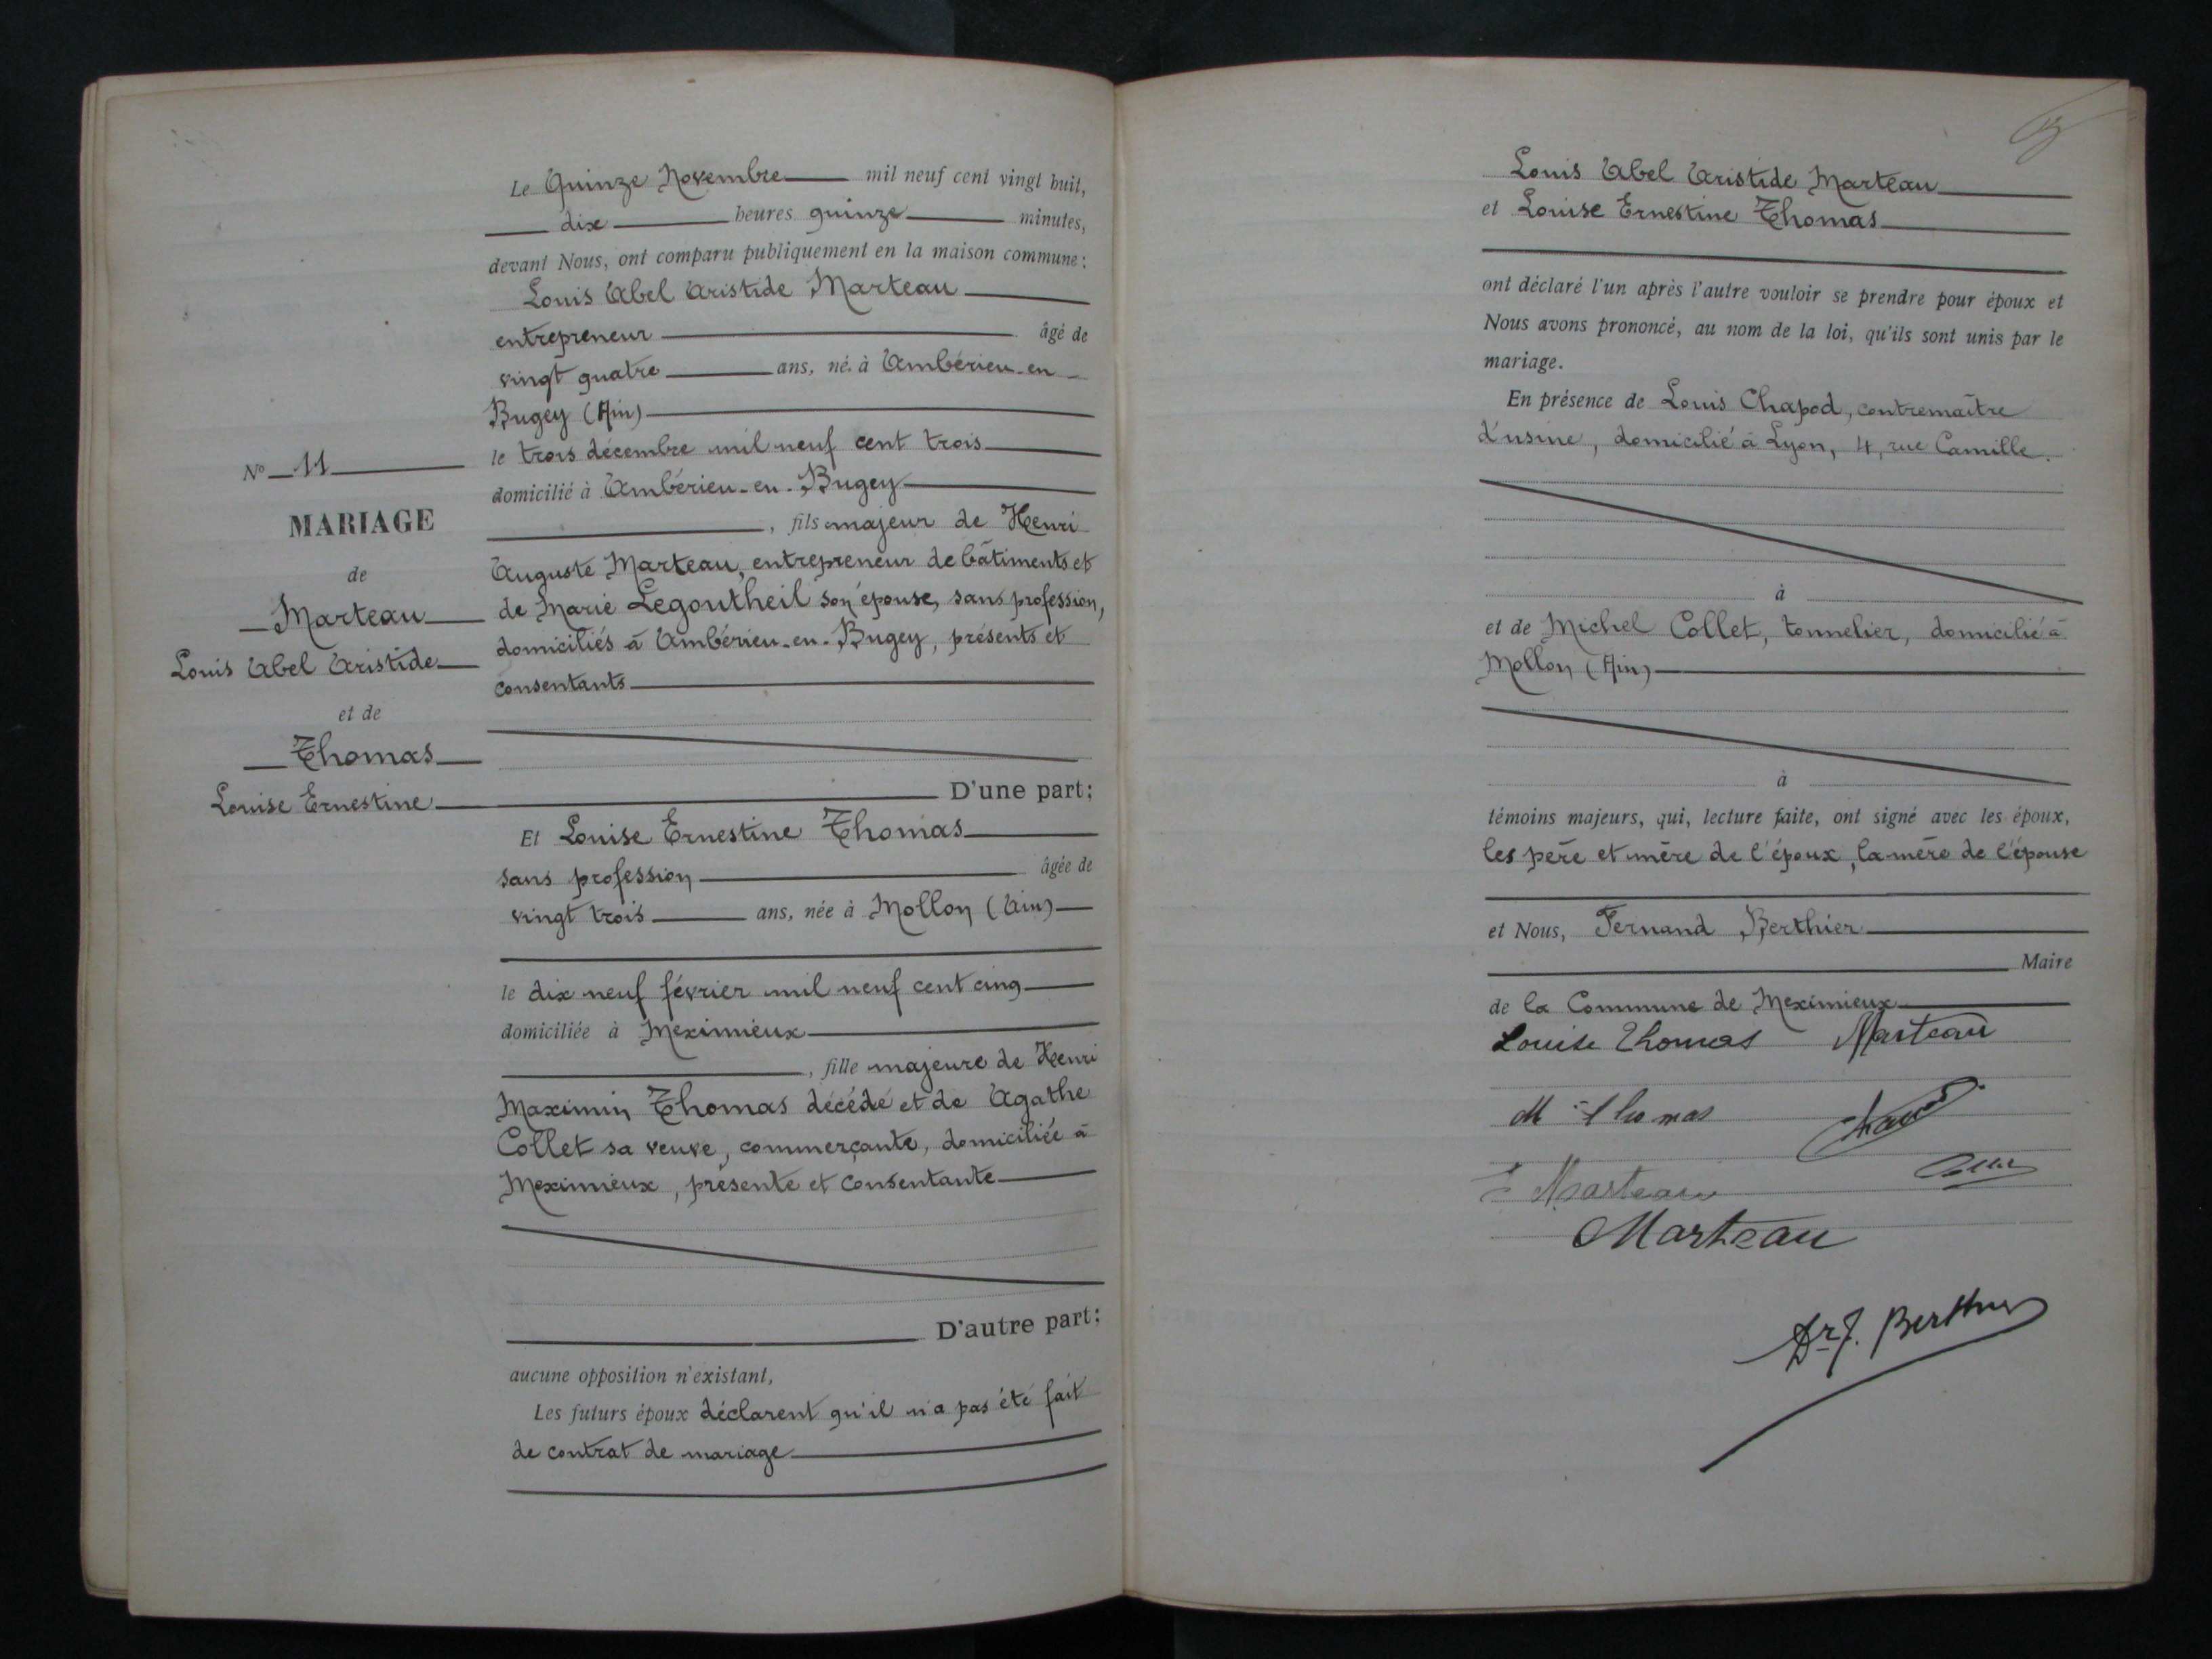 Le Quinze Novembre mil neuf cent vingt huit,
dix heures quinze minutes,
devant Nous, ont comparu publiquement en la maison commune :
Louis Abel Aristide Marteau
entrepreneur âgé de
vingt quatre ans, né à Ambérieu-en-
Bugey (Ain)
le trois décembre mil neuf cent trois
domicilié à Ambérieu-en-Bugey
, fils majeur de Henri
Auguste Marteau, entrepreneur de bâtiments et
de Marie Legoutheil son épouse, sans profession,
domiciliés à Ambérieu-en-Bugey, présents et
consentants
D'une part ;
Et Louise Ernestine Thomas
sans profession âgée de
vingt trois ans, née à Mollon (Ain)
le dix neuf février mil neuf cent cinq
domiciliée à Meximieux
, fille majeure de Henri
Maximin Thomas décédé et de Agathe
Collet sa veuve, commerçante, domiciliée à
Meximieux, présente et consentante
D'autre part ;
aucune opposition n'existant,
Les futurs époux déclarent qu'il n'a pas été fait
de contrat de mariage
No 11
MARIAGE
de
Marteau
Louis Abel Aristide
et de
Thomas
Louise Ernestine
Louis Abel Aristide Marteau
et Louise Ernestine Thomas
ont déclaré l'un après l'autre vouloir se prendre pour époux et
Nous avons prononcé, au nom de la loi, qu'ils sont unis par le
mariage.
En présence de Louis Chapod, contremaître
d'usine, domicilié à Lyon, 4, rue Camille.
à
et de Michel Collet, tonnelier, domicilié à
Mollon (Ain)
à
témoins majeurs, qui, lecture faite, ont signé avec les époux,
les père et mère de l'époux, la mère de l'épouse
et Nous, Fernand Berthier
Maire
de la Commune de Meximieux
Louise Thomas Marteau
M Thomas
Marteau
Marteau
Dr F. Berthier